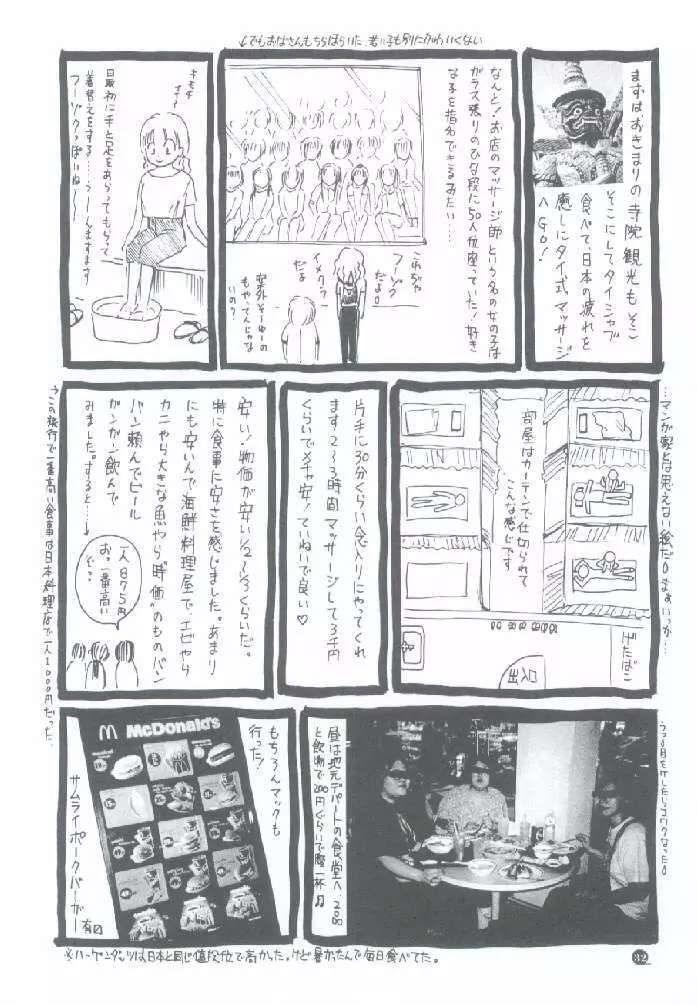 ↓でもおばさんもちらほらいた、若い子も別にかわいくない
まずはおきまりの寺院観光もそこ
そこにしてタイシャブ
食べて、日本の疲れを
癒しにタイ式マッサージ
へGO!
なんと!お店のマッサージ師という名の女の子は
ガラス張りのひな段に50人位座っていた!好き
な子を指名できるみたい…
これじゃ
フーゾク
だよ。
イメクラ
だよ
案外そーゆーの
もやってんじゃな
いの?
キモチ
最初に手と足をあらってもらって
着替えをする…うーんますます
フーゾクっぽいね〜〜
…マンガ家とは思えない絵だ。まあいっか…
部屋はカーテンで仕切られて
こんな感じです
げたばこ
出入口
片手に30分くらい念入りにやってくれ
ます2〜3時間マッサージして3千円
くらいでメチャ安!ていねいで良い♡
安い!物価が安い1/2〜1/3くらいだ。
特に食事に安さを感じました。あまり
にも安いんで海鮮料理屋で、エビやら
カニやら大きな魚やら"時価"のものバン
バン頼んでビール
ガンガン飲んで
みました。すると…→
一人875円
お。一番高い
ぞっ?
→この旅行で一番高い食事は日本料理店で一人1000円だった。
うつる目をかしたらコワクなった。
昼は地元デパートの食堂へ
と飲物で200円ぐらいで腹一杯♫
もちろんマックも
行った!
McDonald's
サムライポークバーガー
有り
※ハーゲンダッツは日本と同じ値段位で高かった。けど暑かったんで毎日食べてた。
32